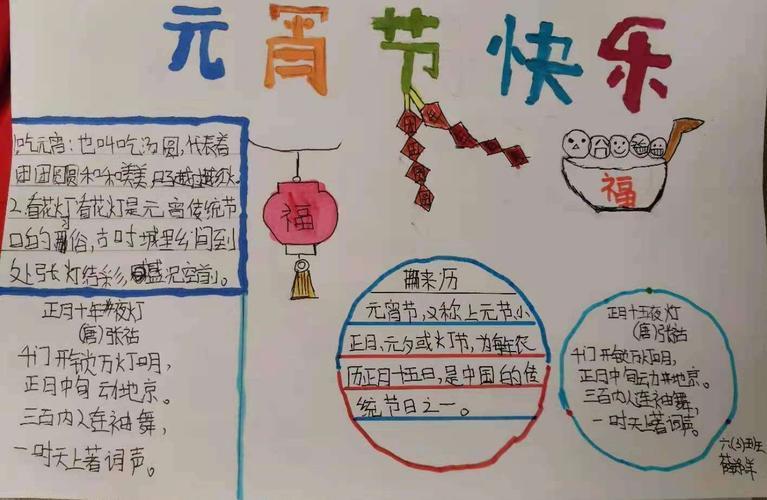 元宵节快乐
吃元宵:也叫吃汤圆,代表着
团团圆圆和和美美,日子越过越红火
2.看花灯看花灯是元宵传统节
日的习俗,古时城里乡间到
处张灯结彩,盛况空前。
正月十年夜灯
(唐)张祜
千门开锁万灯明,
正月中旬动地京。
三百内人连袖舞,
一时天上著词声。
福
福
来历
元宵节,又称上元节、小
正月、元夕或灯节,为每年农
历正月十五日,是中国的传
统节日之一。
正月十五夜灯
(唐)张祜
千门开锁万灯明,
正月中旬动地京。
三百内人连袖舞,
一时天上著词声。
六(3)班